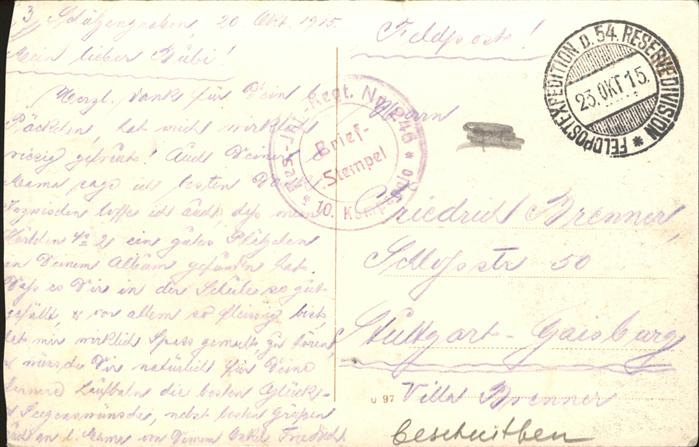 Schützengraben, 20 Okt. 1915
Mein lieber Bubi!
Herzl. Dank für Dein l.
Päckchen, hat mich wirklich
riesig gefreut! Auch Deiner l.
Mama sage ich besten Dank
Inzwischen hoffe ich auch, dass mein
Kärtchen No 2 ein gutes Plätzchen
in Deinem Album gefunden hat.
Dass es Dir in der Schule so gut
gefällt, & vor allem so fleissig bist
hat mir wirklich Spass gemacht zu hören,
& wünsche Dir natürlich für Deine
fernere Laufbahn die besten Glücks-
& Segenswünsche, nebst besten Grüssen
auch an l. Mama von Deinem Onkel Friedrich
Feldpost!
Herrn
Friedrich Brenner,
Schloßstr 50
Stuttgart-Gaisburg
Villa Brenner
beschrieben
FELDPOSTEXPEDITION D. 54. RESERVEDIVISION
23. OKT 15.
Res.-Inf.-Regt. No. 246
Brief-
Stempel
10. Komp.
u 97